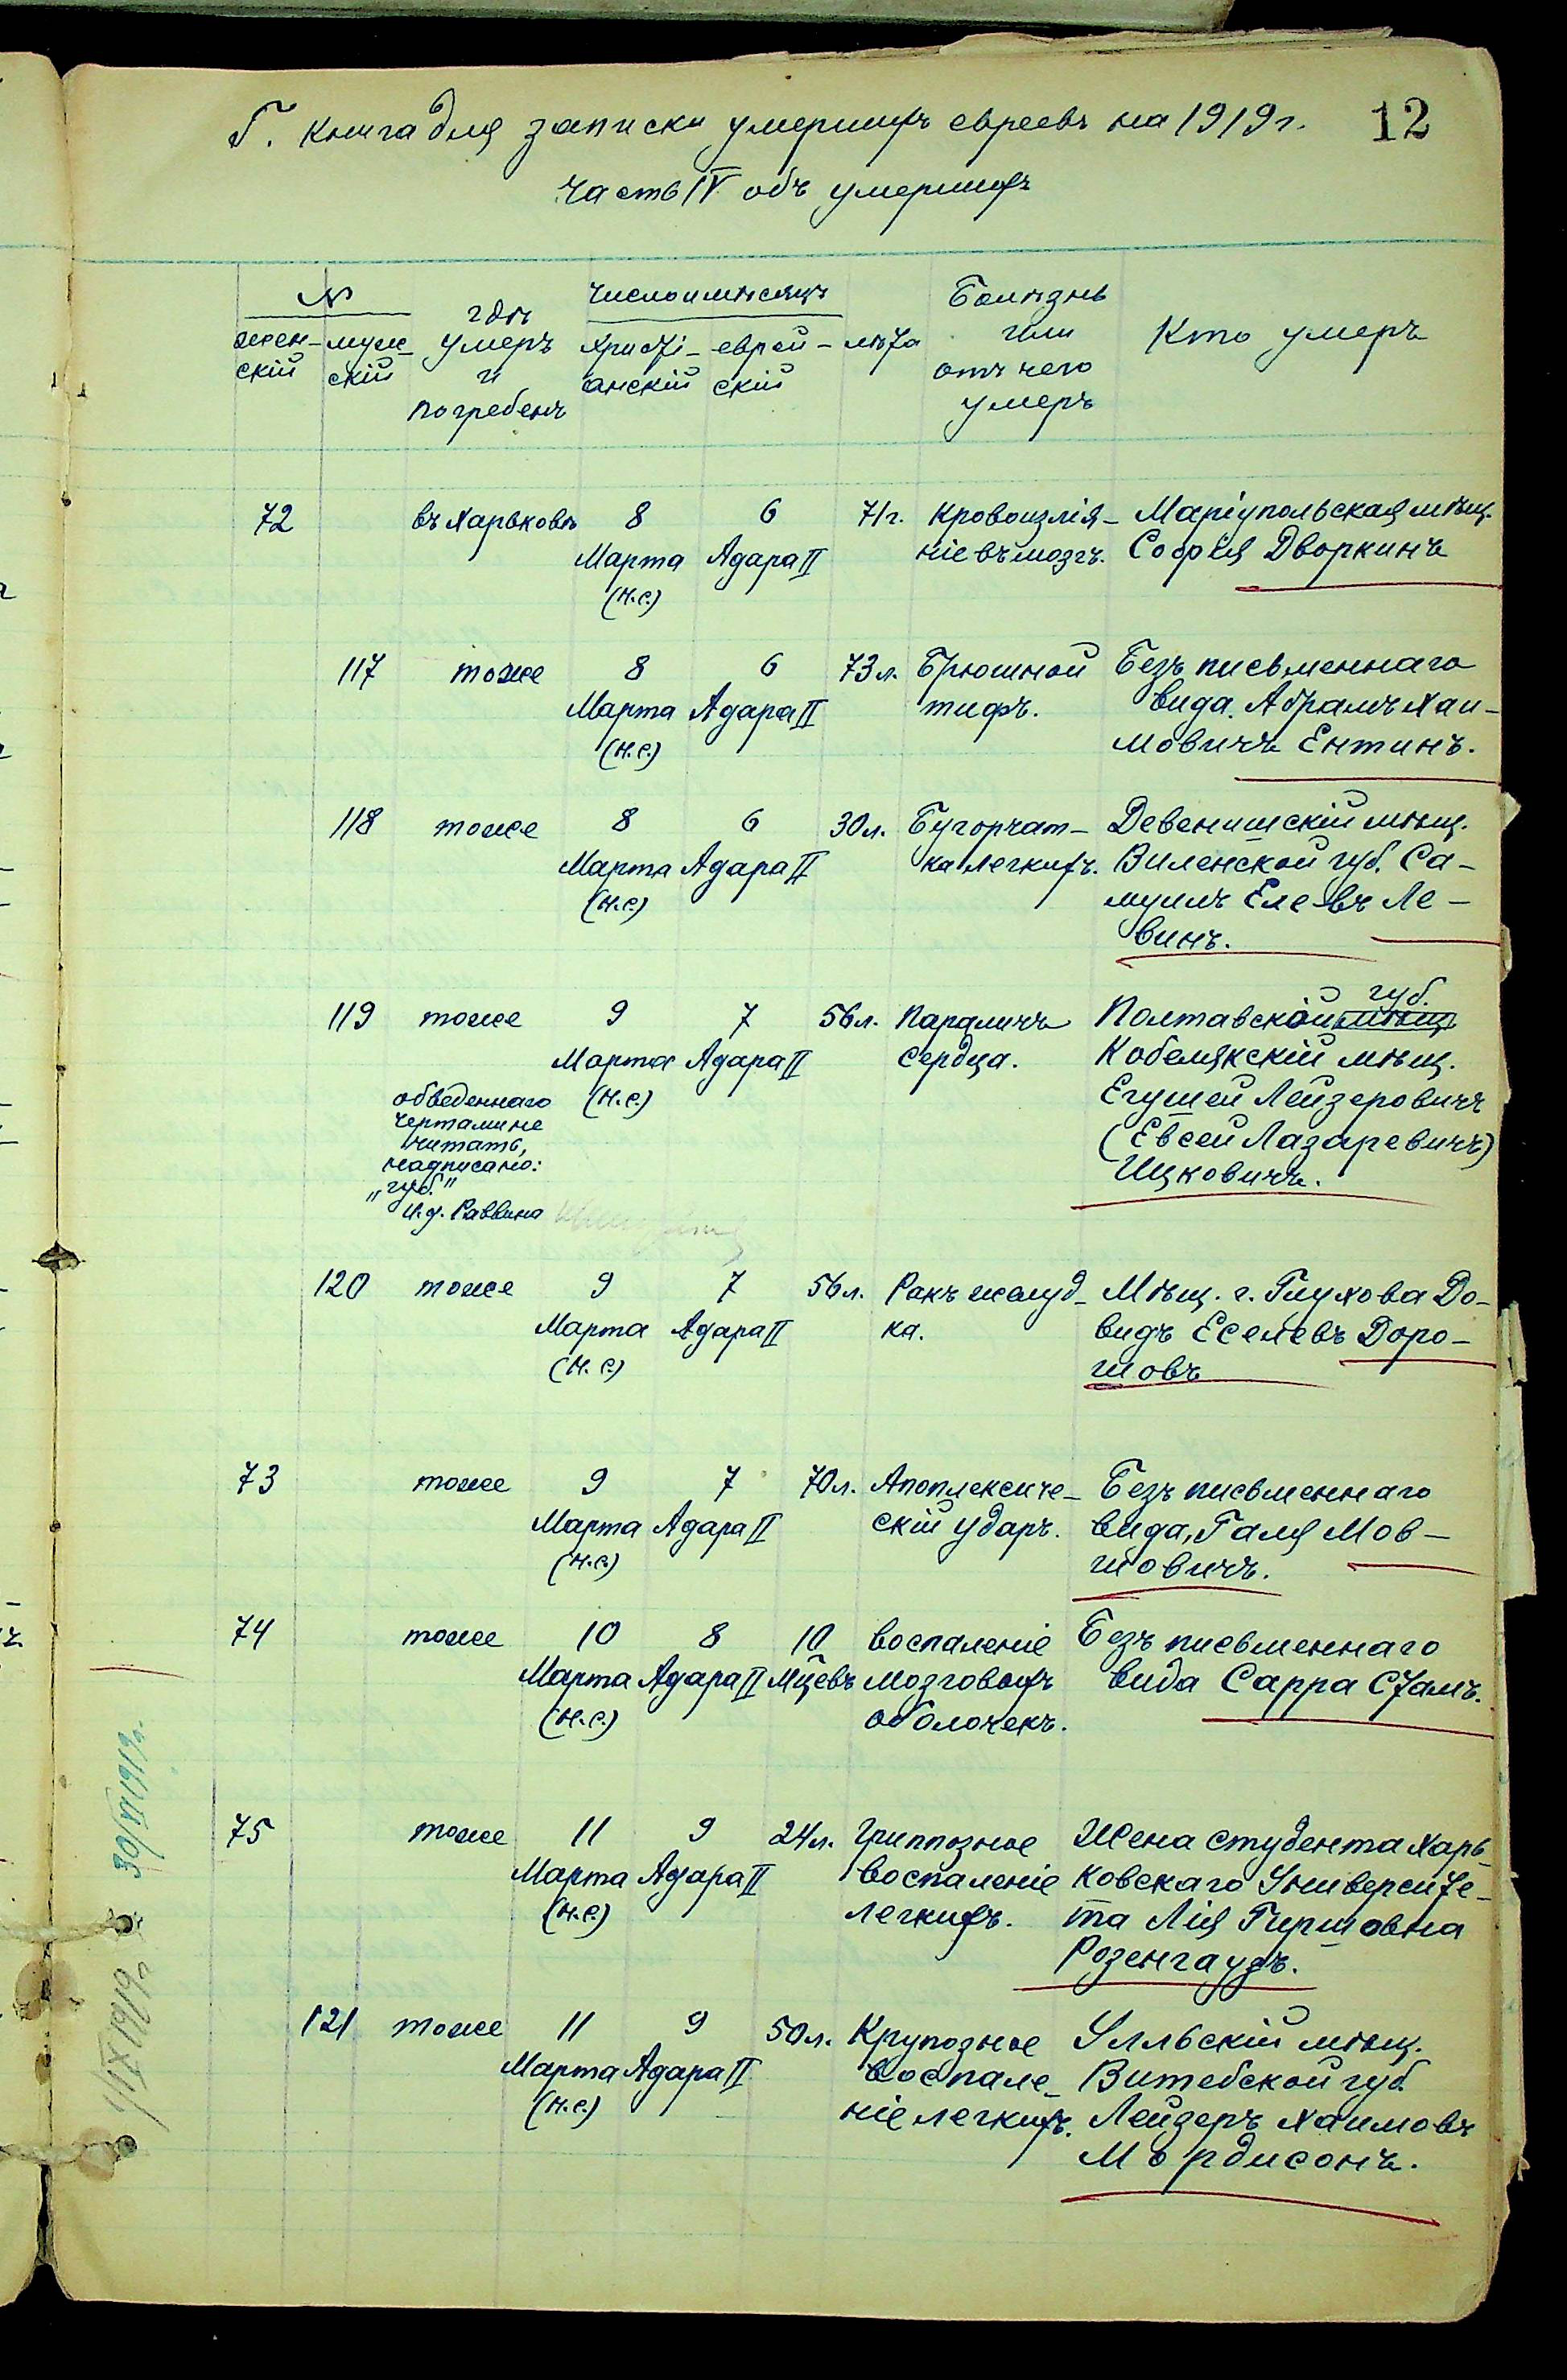 Г. Книга для записки умершихъ евреевъ на 1919 г. 12
Часть IV объ умершихъ
№
женскій
мужскій
гдѣ
умеръ
и
погребенъ
Число и мѣсяцъ
Христі-
анскій
еврей-
скій
лѣта
Болѣзнь
или
отъ чего
умеръ
Кто умеръ
72 въ Харьковѣ 8 6 71 г. Кровоизлія- Маріупольская мѣщ.
Марта Адара II ніе въ мозгъ. Софія Дворкинъ
(н.с.)
117 тоже 8 6 73 л. Брюшной Безъ письменнаго
Марта Адара II тифъ. вида. Абрамъ Хаи-
(н.с.) мовичъ Ентинъ.
118 тоже 8 6 30 л. Бугорчат- Девенишскій мѣщ.
Марта Адара II ка легкихъ. Виленской губ. Са-
(н.с.) муилъ Еле-въ Ле-
винъ.
губ.
119 тоже 9 7 56 л. Параличъ Полтавской мѣщ.
Марта Адара II сердца. Кобелякскій мѣщ.
(н.с.) Егушей Лейзеровичъ
(Евсей Лазаревичъ)
Ицковичъ.
обведеннаго
чертами не
читать,
надписано:
„губ."
И.д. Раввина
120 тоже 9 7 56 л. Ракъ желуд- Мѣщ. г. Глухова До-
Марта Адара II ка. видъ Еселевъ Доро-
(н.с.) шовъ
73 тоже 9 7 70 л. Апоплексиче- Безъ письменнаго
Марта Адара II скій ударъ. вида, Галя Мов-
(н.с.) шовичъ.
74 тоже 10 8 10 воспаленіе Безъ письменнаго
Марта Адара II мцевъ мозговыхъ вида Сарра Стамъ.
(н.с.) оболочекъ.
75 тоже 11 9 24 л. Гриппозное Жена студента Харь-
Марта Адара II воспаленіе ковскаго Университе-
(н.с.) легкихъ. та Лія Гиршовна
Розенгаузъ.
121 тоже 11 9 50 л. Крупозное Улльскій мѣщ.
Марта Адара II воспале- Витебской губ.
(н.с.) ніе легкихъ. Лейзеръ Хаимовъ
Мордисонъ.